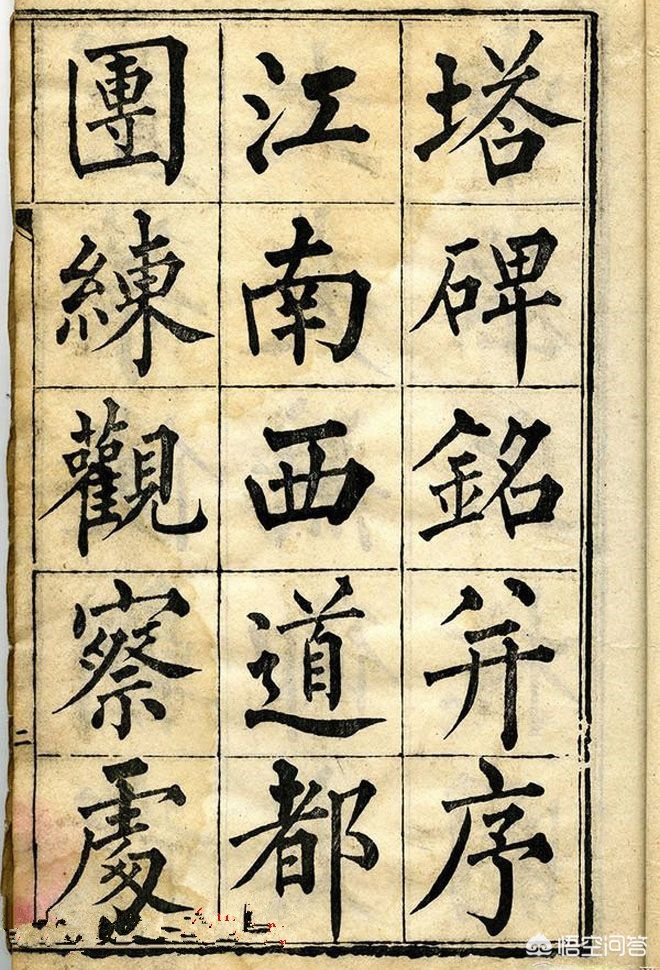 塔碑銘并序
江南西道都
團練觀察處
二
悟空问答